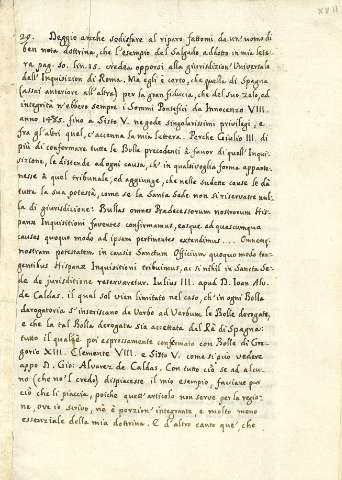 XVII
29. Deggio anche sodisfare al riparo fattomi da un' uomo di
ben nota dottrina, che l'esempio del Salgado addotto in mia lette
ra pag. 50. lin. 25. vedea opporsi alla giurisdizion' Universale
dell' Inquisizion di Roma. Ma egli è certo, che quella di Spagna
(assai anteriore all' altra) per la gran fiducia, che del suo zelo, ed
integrità n'ebbero sempre i Sommi Pontefici da Innocenzo VIII.
anno 1485. fino a Sisto V. ne gode singularissimi privilegi, e
fra gl'altri quel, ch'accenna la mia lettera. Perche Giulio III. di
più di confermare tutte le Bulle precedenti à favor di quell' Inqui-
sizione, le distende ad ogni causa, ch' in qualsivoglia forma apparte-
nesse à quel tribunale; ed aggiunge, che nelle sudette cause le dà
tutta la sua potestà, come se la Santa Sede non si riservasse nul-
la di giurisdizione: Bullas omnes Praedecessorum nostrorum His-
panae Inquisitioni faventes confirmamus, easque ad quascumque
causas quoquo modo ad ipsam pertinentes extendimus .... Omnemq;
nostram potestatem in causis Sanctum Officium quoquo modo tan-
gentibus Hispanae Inquisitioni tribuimus, ac si nihil in Sancta Se-
de de jurisditione reservaretur. Iulius III. apud D. Ioan. Alu.
de Caldas. il qual sol vien limitato nel caso, ch' in ogni Bolla
derogatoria s' inseriscano de Verbo ad Verbum le Bolle derogate,
e che la tal Bolla derogata sia accettata del Rè di Spagna:
tutto il qual è poi espressamente confermato con Bolle di Gre-
gorio XIII. Clemente VIII. e Sisto V. come si può vedere
appo D. Gio: Alvarez de Caldas. Con tutto ciò se ad alcu-
no (che no'l credo) dispiacesse il mio esempio, facciane pur
ciò che li piaccia, poiche quest' articolo non serve per la regio-
ne, ove io scrivo, nè è porzion' integrante, e molto meno
essenziale della mia dottrina. E d'altro canto què, che